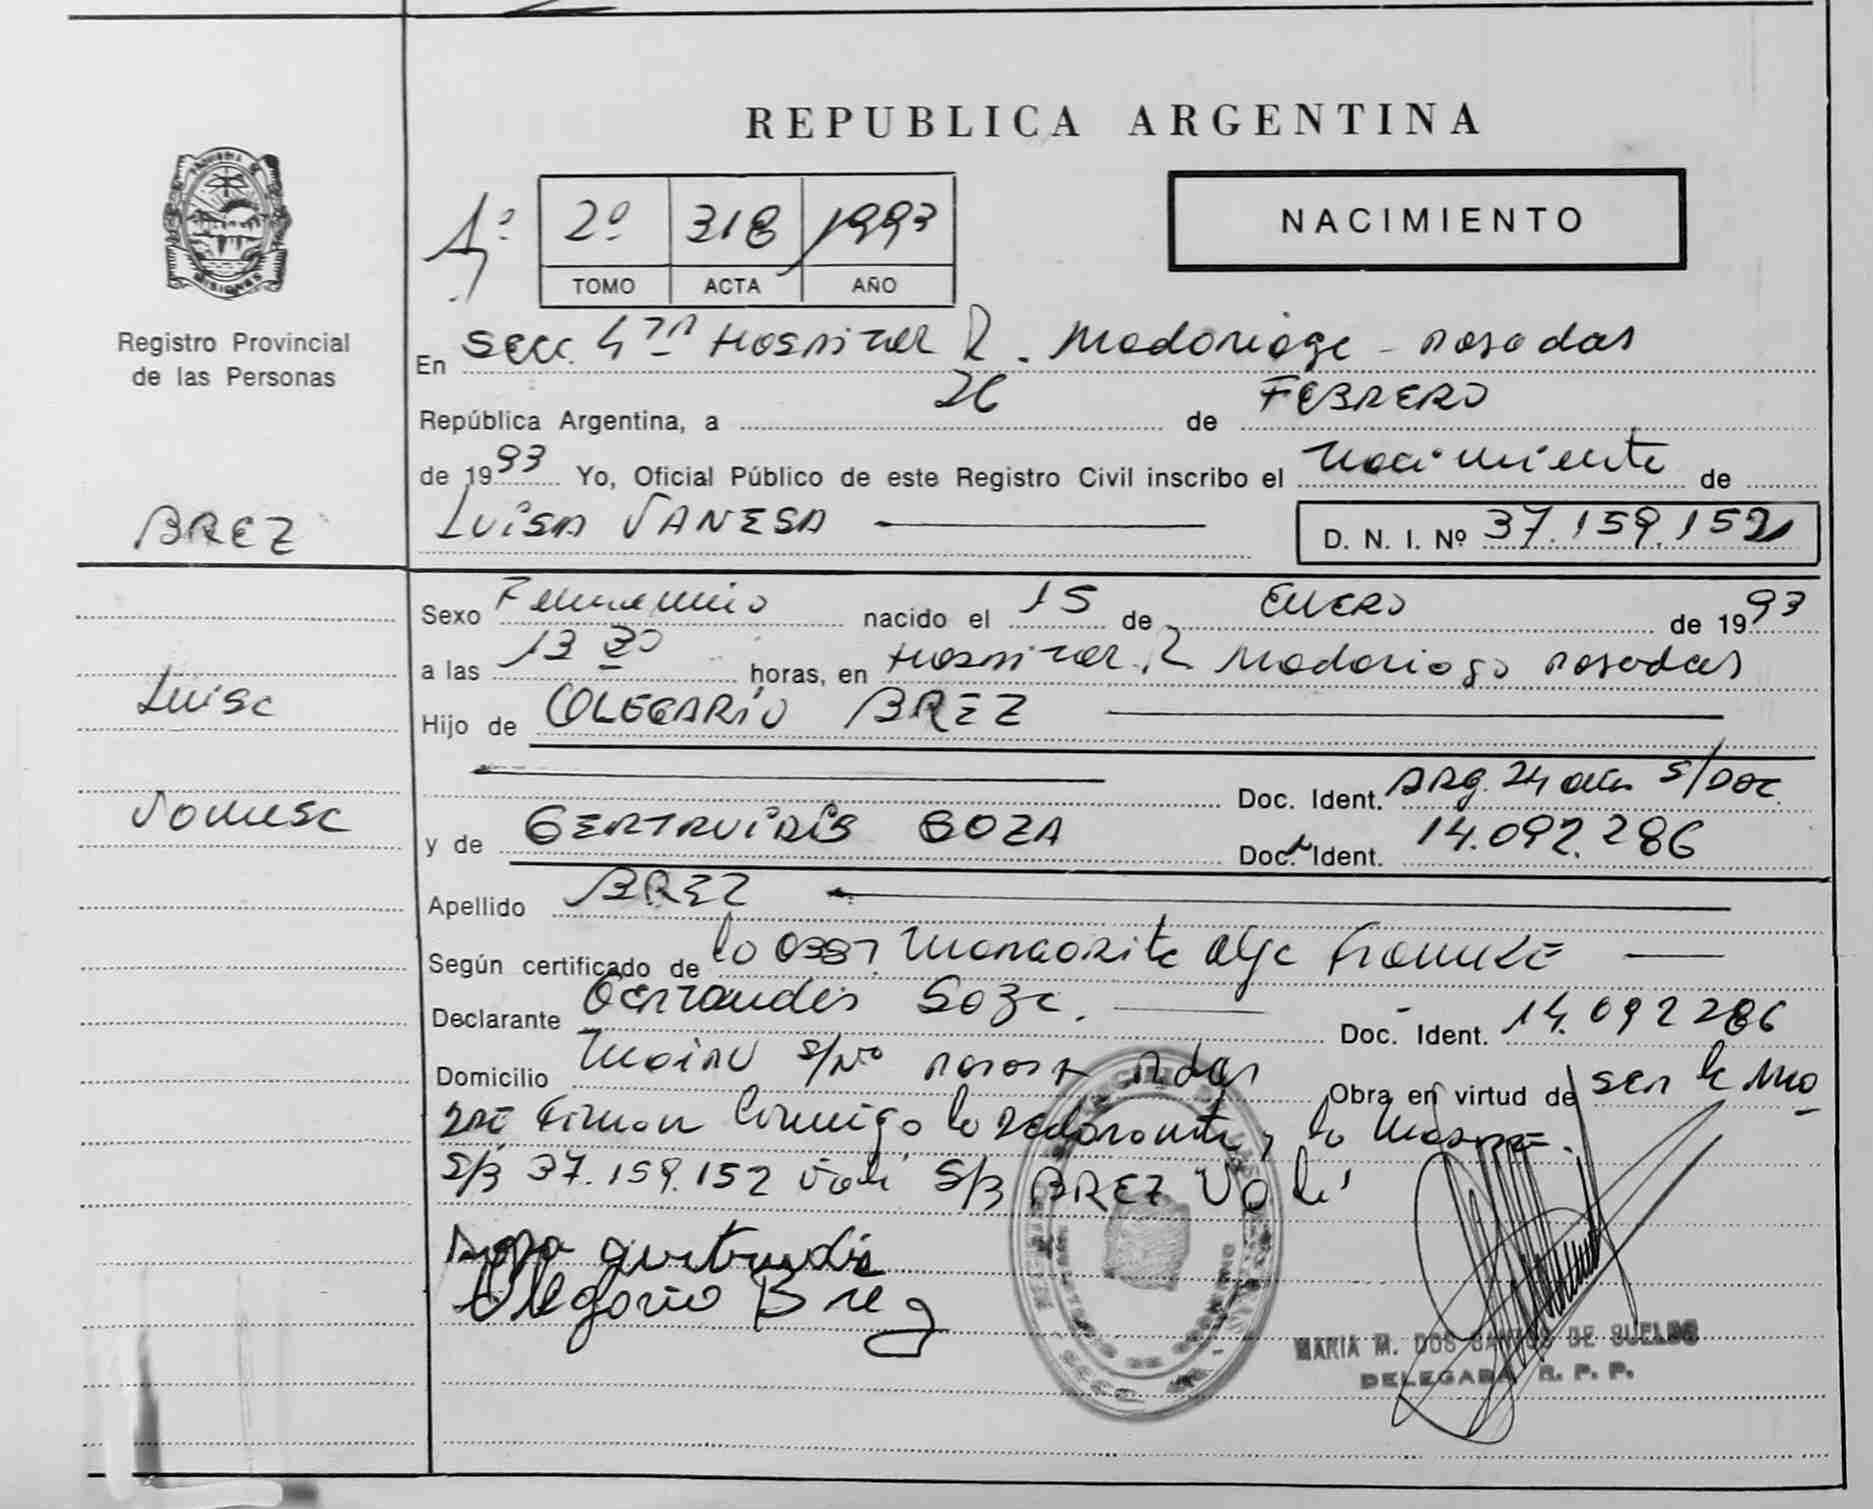 REPUBLICA ARGENTINA
1º
2º 318 1993
TOMO ACTA AÑO
NACIMIENTO
MISIONES
Registro Provincial
de las Personas
En Secc. 4ta Hospital R. Madariaga - Posadas
República Argentina, a 26 de FEBRERO
de 1993 Yo, Oficial Público de este Registro Civil inscribo el Nacimiento de
BREZ
LUISA VANESA
D. N. I. Nº 37.159.152
Sexo Femenino nacido el 15 de ENERO de 1993
a las 13 30 horas, en Hospital R Madariaga Posadas
Luisa
Hijo de OLEGARIO BREZ
Doc. Ident. ARG. 24 años S/Doc.
Vanesa
y de GERTRUDIS SOZA Doc. Ident. 14.092.286
Apellido BREZ
Según certificado de la Obst. Margarita Olga
Declarante Gertrudis Soza. Doc. Ident. 14.092286
Domicilio s/Nº Posadas Obra en virtud de ser la ma
dre Firman Conmigo la declarante y
S/B 37.159.152 Vale S/B BREZ Vale
Soza Gertrudis
Olegario Brez
MARIA M. DOS SANTOS DE SUELDO
DELEGADA R. P. P.